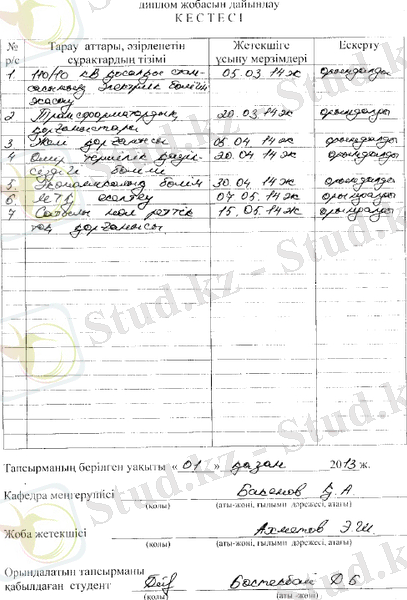 диплом жобасын дайындау
КЕСТЕСІ
№ р/с Тарау аттары, әзірленетін сұрақтардың тізімі Жетекшіге ұсыну мерзімдері Ескерту
1 110/10 кВ қосалқы стан- 05.03.14ж орындалды
сасының электрлік бөлімін
жасау
2 Трансформатордың 20.03.14ж орындалды
қорғаныстары
3 Желі қорғанысы 05.04.14ж орындалды
4 Өмір тіршілік қауіп- 20.04.14ж орындалды
сіздігі бөлімі
5 Экономикалық бөлім 30.04.14ж орындалды
6 есептеу 07.05.14ж орындалды
7 Сатылы нөл реттік 15.05.14ж орындалды
ток қорғанысы
Тапсырманың берілген уақыты «01» қазан 2013 ж.
Кафедра меңгерушісі Ә.А.
(қолы) (аты-жөні, ғылыми дәрежесі, атағы)
Жоба жетекшісі Ахметов Э.Ш.
(қолы) (аты-жөні, ғылыми дәрежесі, атағы)
Орындалатын тапсырманы
қабылдаған студент Д Б
(қолы) (аты-жөні)
Stud.kz - Stud.kz